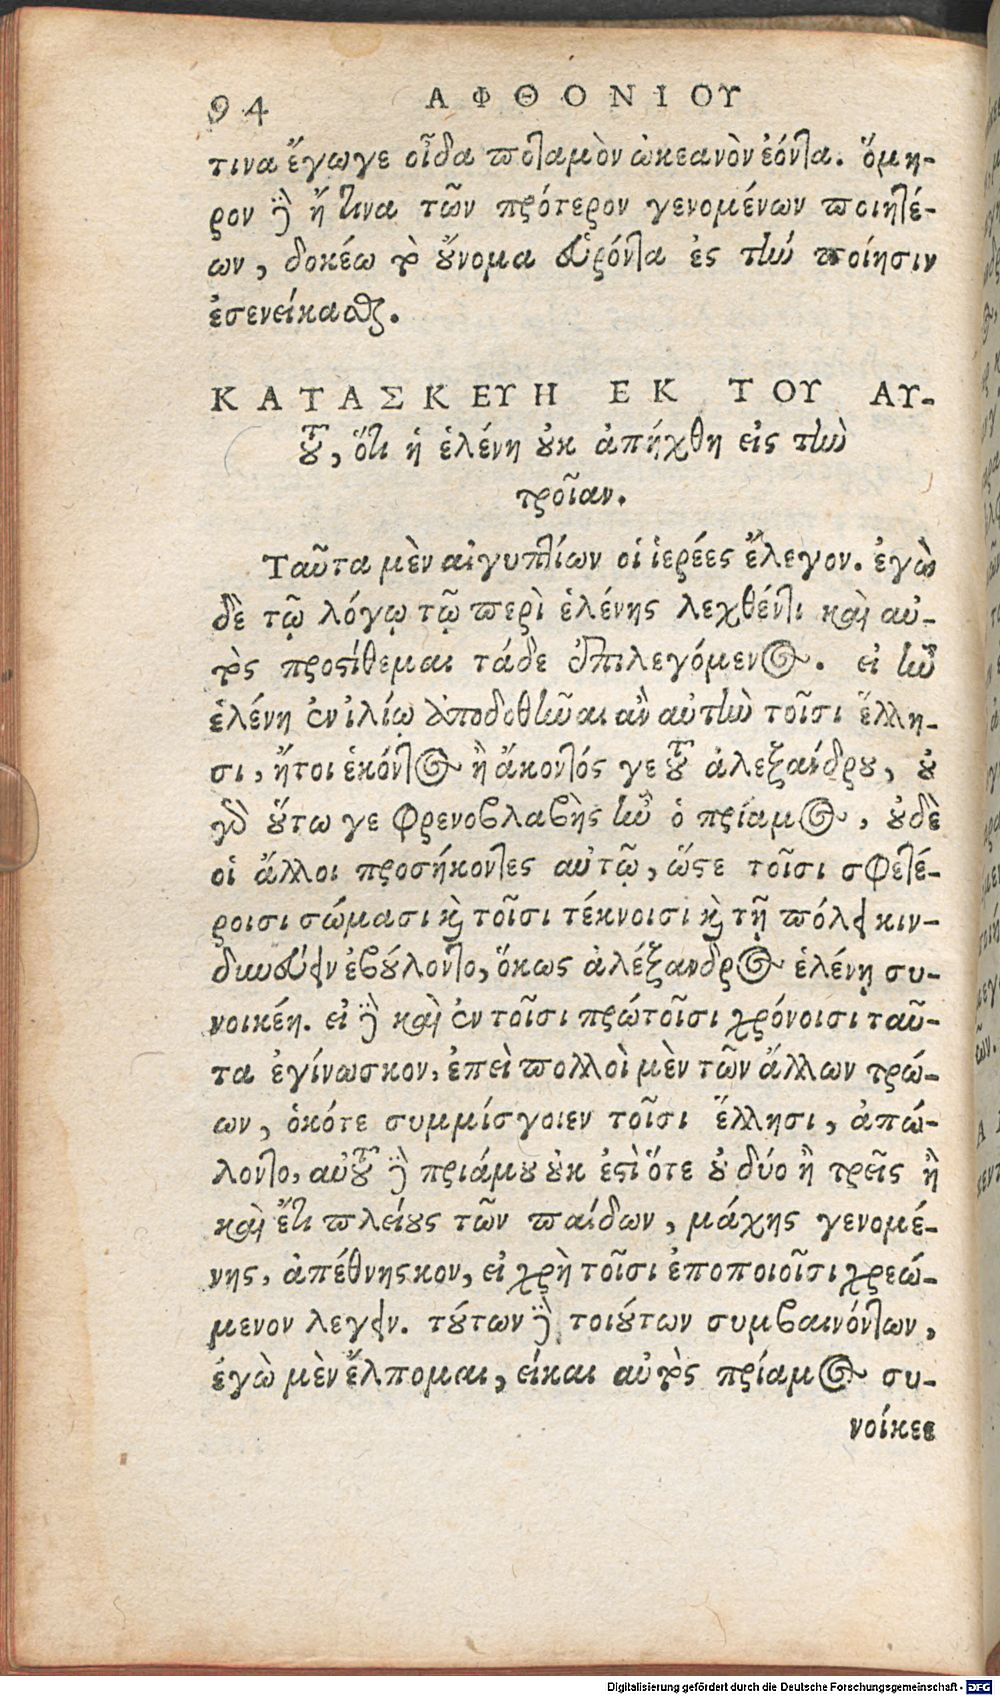 94 ΑΦΘΟΝΙΟΥ
τινα ἔγωγε οἶδα ποταμὸν ὠκεανὸν ἐόντα. ὅμη-
ρον δὲ ἤ τινα τῶν πρότερον γενομένων ποιητέ-
ων, δοκέω τὸ οὔνομα εὑρόντα ἐς τὴν ποίησιν
ἐσενείκασθαι.
ΚΑΤΑΣΚΕΥΗ ΕΚ ΤΟΥ ΑΥ-
τοῦ, ὅτι ἡ ἑλένη οὐκ ἀπήχθη εἰς τὴν
τροῖαν.
Ταῦτα μὲν αἰγυπτίων οἱ ἱερέες ἔλεγον. ἐγὼ
δὲ τῷ λόγῳ τῷ περὶ ἑλένης λεχθέντι καὶ αὐ-
τὸς προστίθεμαι τάδε ἐπιλεγόμενος. εἰ ἦν
ἑλένη ἐν ἰλίῳ ἀποδοθῆναι ἂν αὐτὴν τοῖσι ἕλλη-
σι, ἤτοι ἑκόντος ἢ ἄκοντός γε τοῦ ἀλεξάνδρου, οὐ
γὰρ οὕτω γε φρενοβλαβὴς ἦν ὁ πρίαμος, οὐδὲ
οἱ ἄλλοι προσήκοντες αὐτῷ, ὥστε τοῖσι σφετέ-
ροισι σώμασι καὶ τοῖσι τέκνοισι καὶ τῇ πόλει κιν-
δυνεύειν ἐβούλοντο, ὅκως ἀλέξανδρος ἑλένῃ συ-
νοικέῃ. εἰ δὲ καὶ ἐν τοῖσι πρώτοῖσι χρόνοισι ταῦ-
τα ἐγίνωσκον, ἐπεὶ πολλοὶ μὲν τῶν ἄλλων τρώ-
ων, ὁκότε συμμίσγοιεν τοῖσι ἕλλησι, ἀπώ-
λοντο, αὐτοῦ δὲ πριάμου οὐκ ἐστὶ ὅτε οὐ δύο ἢ τρεῖς ἢ
καὶ ἔτι πλείους τῶν παίδων, μάχης γενομέ-
νης, ἀπέθνησκον, εἰ χρὴ τοῖσι ἐποποιοῖσι χρεώ-
μενον λεγειν. τούτων δὲ τοιούτων συμβαινόντων,
ἐγὼ μὲν ἔλπομαι, εἰ καὶ αὐτὸς πρίαμος συ-
νοίκεε
Digitalisierung gefördert durch die Deutsche Forschungsgemeinschaft - DFG